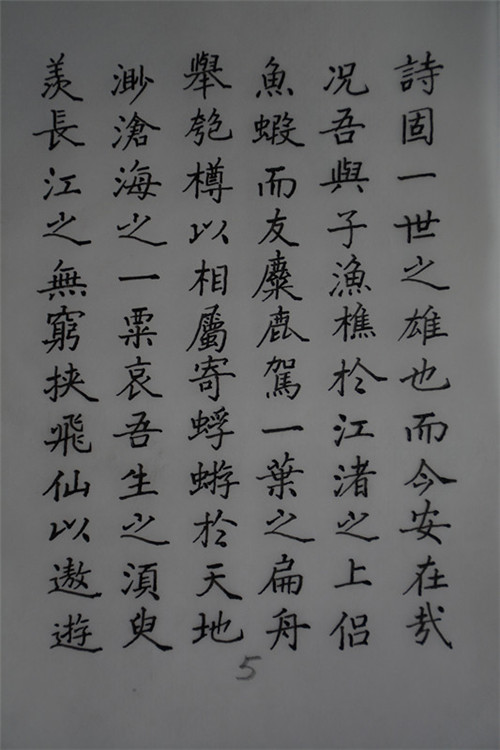 詩固一世之雄也而今安在哉
况吾與子漁樵於江渚之上侣
魚蝦而友麋鹿駕一葉之扁舟
舉匏樽以相屬寄蜉蝣於天地
渺滄海之一粟哀吾生之湏臾
羨長江之無窮挟飛仙以遨遊
5